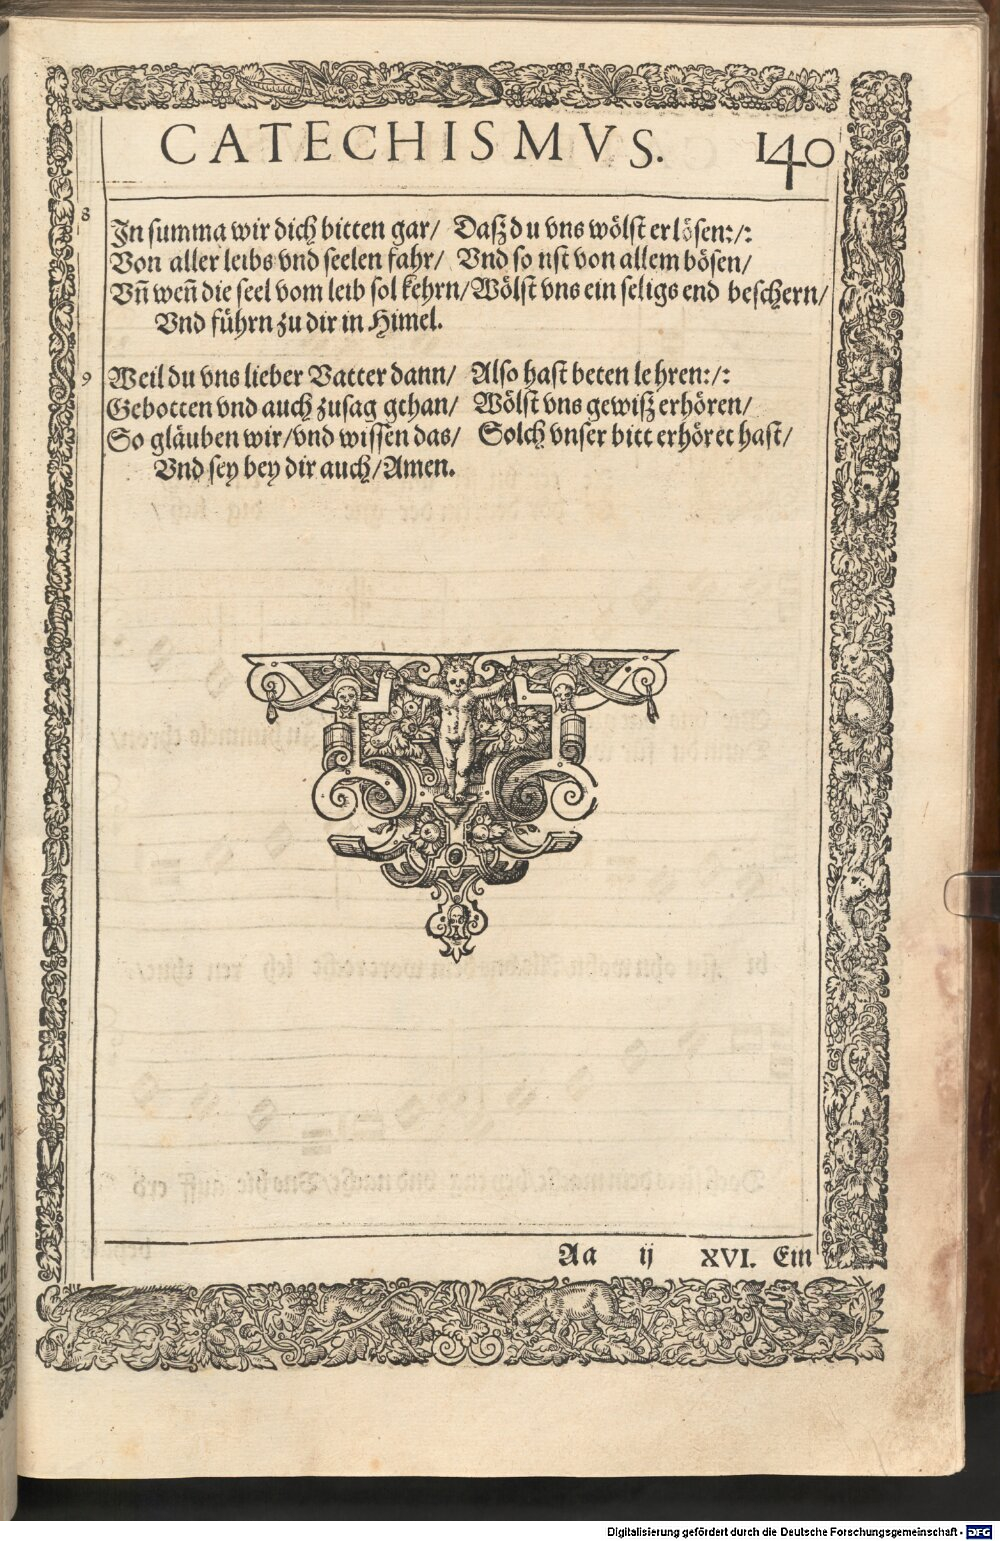 CATECHISMVS. 140
8
In summa wir dich bitten gar/ Dasz du vns wölst erlösen:/:
Von aller leibs vnd seelen fahr/ Vnd so nst von allem bösen/
Vñ weñ die seel vom leib sol kehrn/ Wölst vns ein seligs end beschern/
Vnd führn zu dir in Himel.
9 Weil du vns lieber Vatter dann/ Also hast beten lehren:/:
Gebotten vnd auch zusag gthan/ Wölst vns gewisz erhören/
So gläuben wir/ vnd wissen das/ Solch vnser bitt erhöret hast/
Vnd sey bey dir auch/ Amen.
Aa ij XVI. Ein
Digitalisierung gefördert durch die Deutsche Forschungsgemeinschaft - DFG